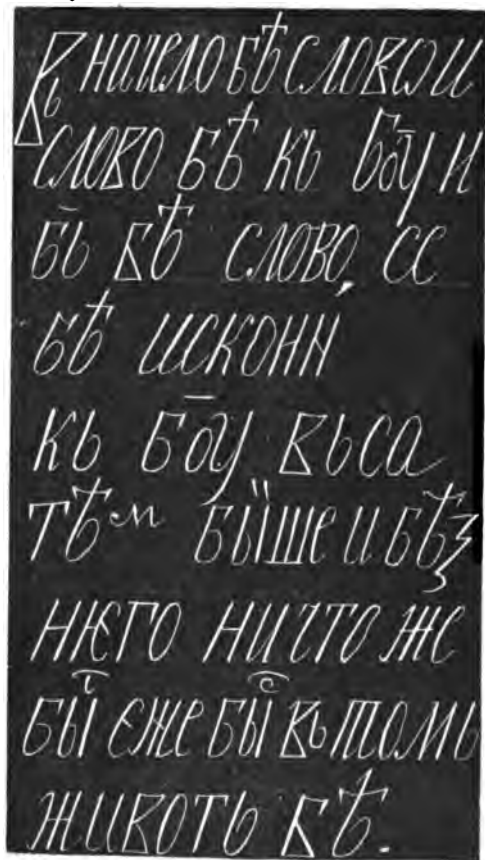 Вь начело бѣ слово и
слово бѣ кь Бо̄у и
б̄ь бѣ слово, се
бѣ искони
кь Бо̄у вьса
тѣⷨ бы̏ше и бѣз
нѥго ничто же
бы̑ єже быⷭ҇ вь томь
животь бѣ.